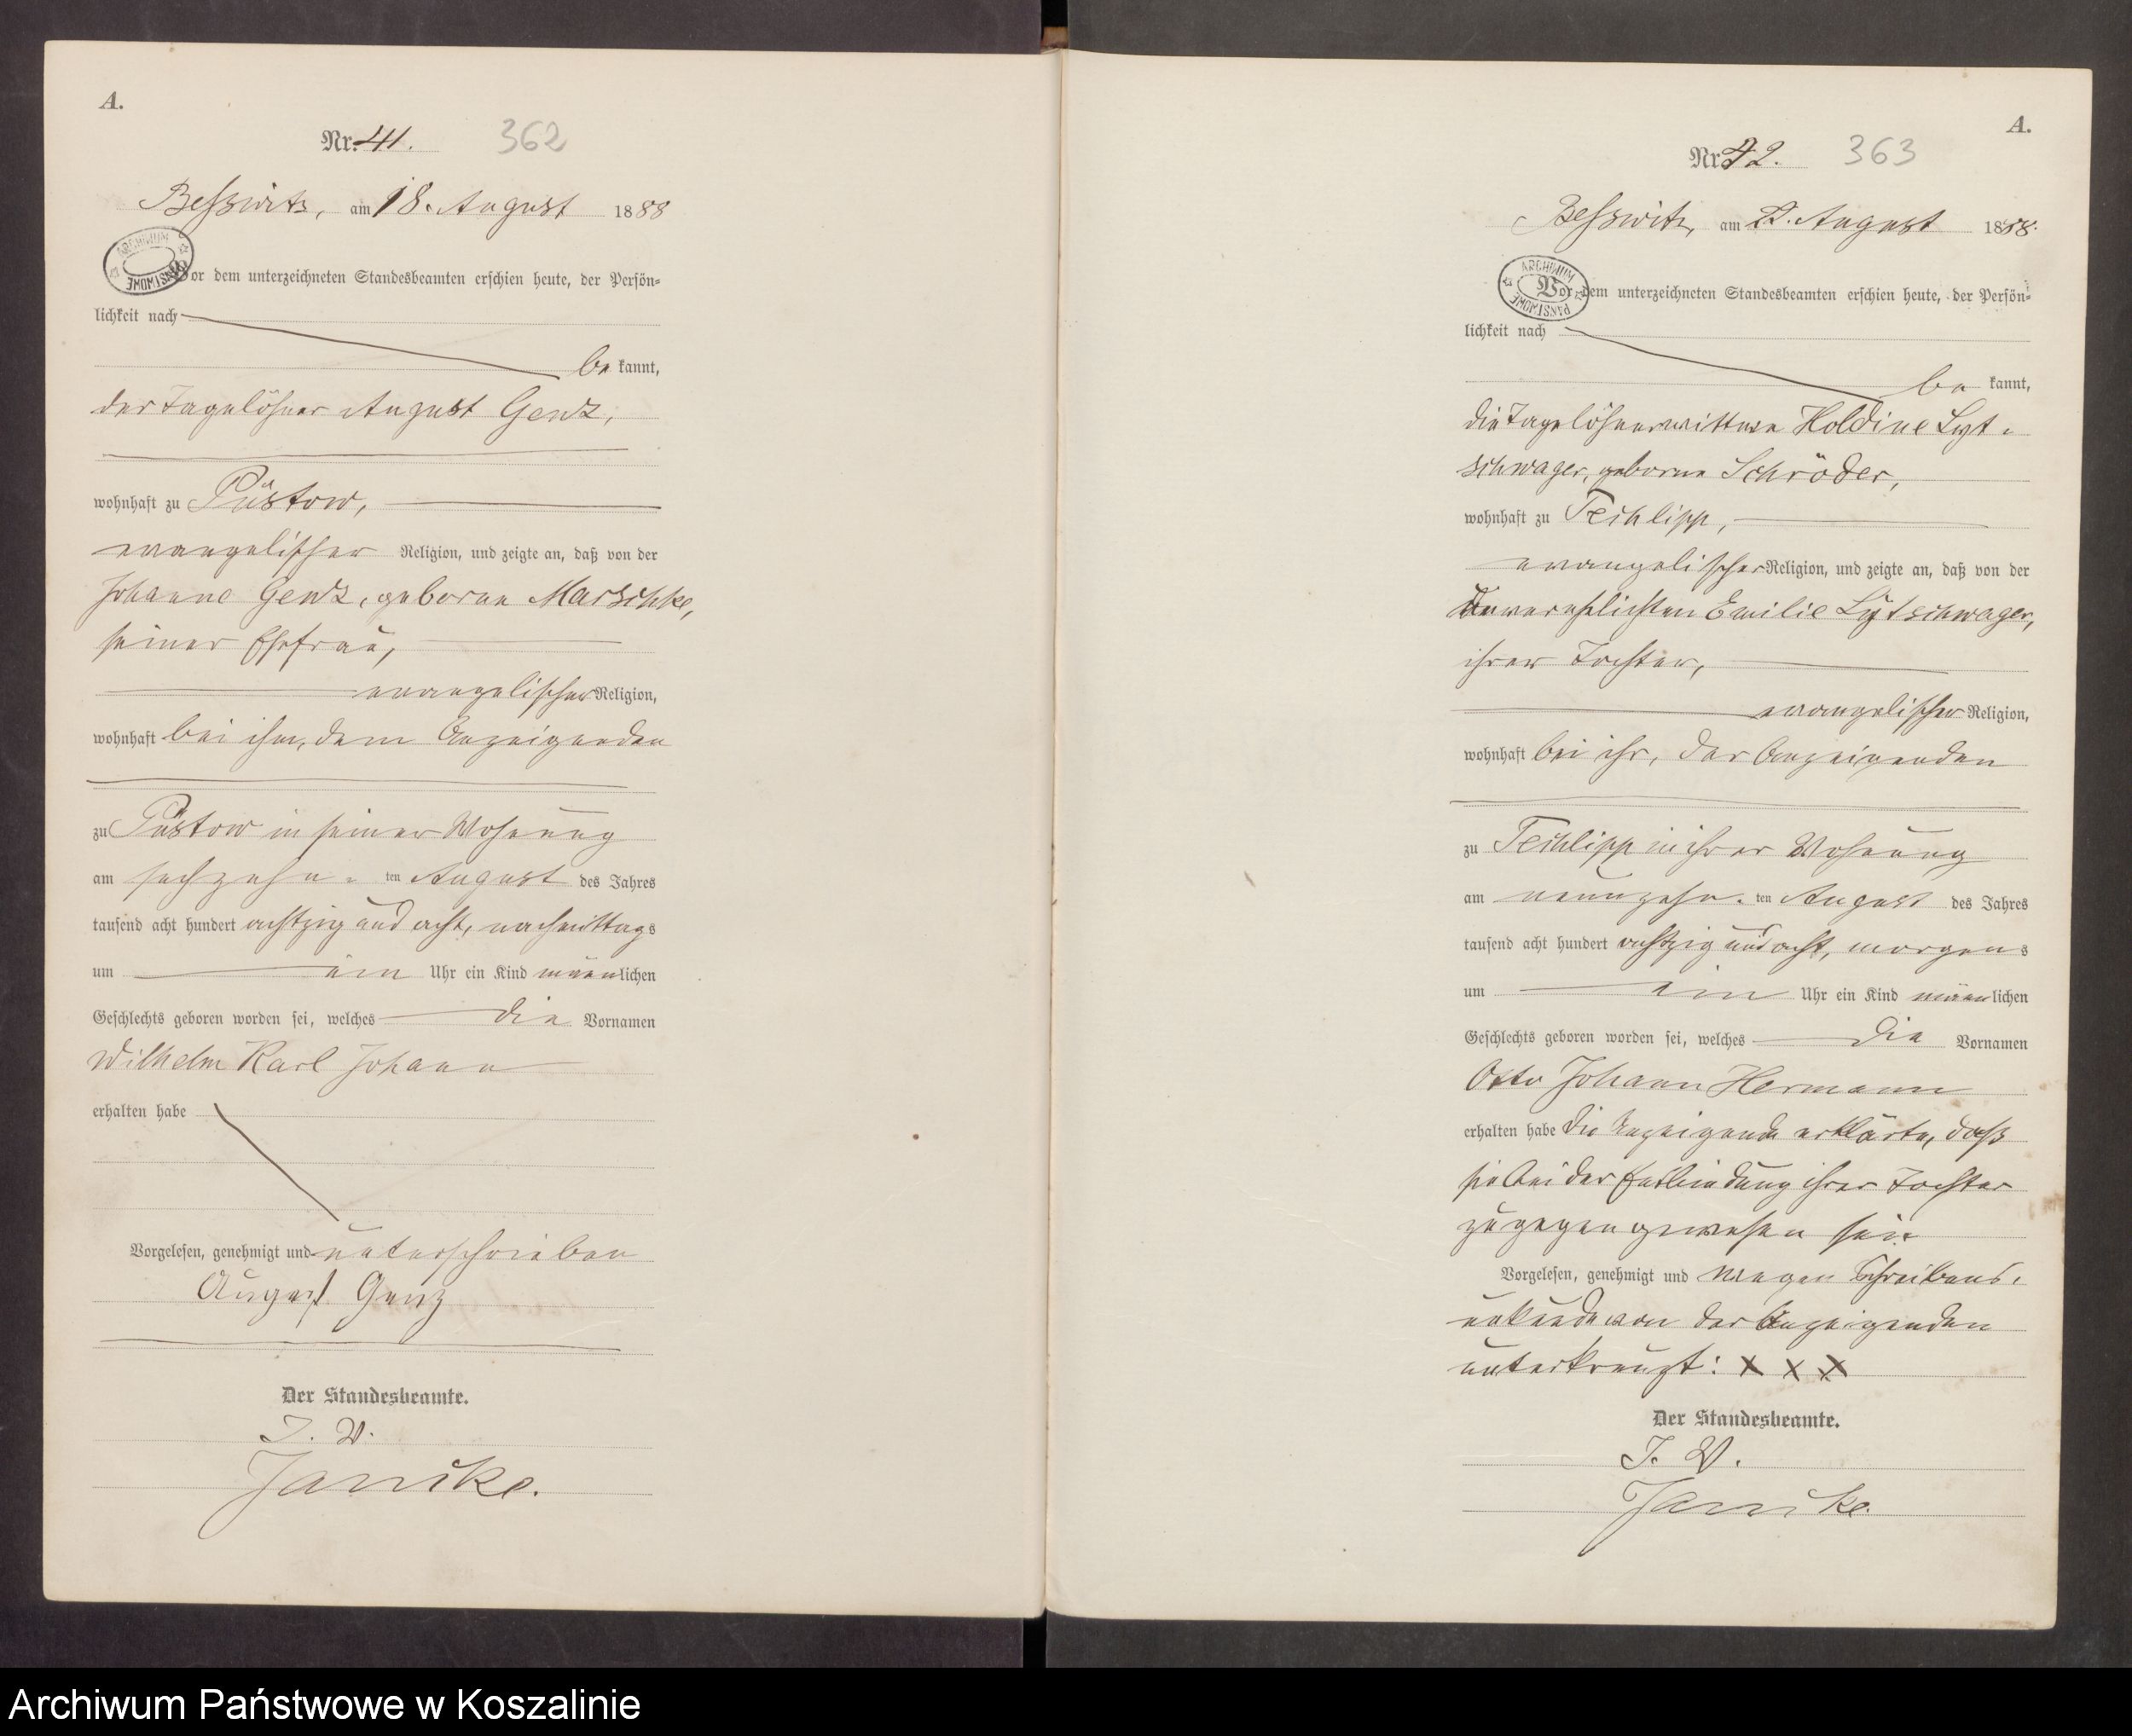 A.
Nr. 41. 362
Besswitz, am 18. August 1888
ARCHIWUM PAŃSTWOWE
Vor dem unterzeichneten Standesbeamten erschien heute, der Persön=
lichkeit nach
be kannt,
der Tagelöhner August Genz,
wohnhaft zu Püstow,
evangelischer Religion, und zeigte an, daß von der
Johanne Genz, geborne Marschke,
seiner Ehefrau,
evangelischer Religion,
wohnhaft bei ihm, dem Anzeigenden
zu Püstow in seiner Wohnung
am sechzehn= ten August des Jahres
tausend acht hundert achtzig und acht, nachmittags
um ein Uhr ein Kind männlichen
Geschlechts geboren worden sei, welches die Vornamen
Wilhelm Karl Johann
erhalten habe
Vorgelesen, genehmigt und unterschrieben
August Genz
Der Standesbeamte.
I. V.
Janike.
A.
Nr. 42. 363
Besswitz, am 22. August 1888.
ARCHIWUM PAŃSTWOWE
Vor dem unterzeichneten Standesbeamten erschien heute, der Persön=
lichkeit nach
be kannt,
die Tagelöhnerwittwe Holdine Lyt=
schwager, geborne Schröder,
wohnhaft zu Techlipp,
evangelischer Religion, und zeigte an, daß von der
unverehelichten Emilie Lytschwager,
ihrer Tochter,
evangelischer Religion,
wohnhaft bei ihr, der Anzeigenden
zu Techlipp in ihrer Wohnung
am neunzehn= ten August des Jahres
tausend acht hundert achtzig und acht, morgens
um ein Uhr ein Kind männlichen
Geschlechts geboren worden sei, welches die Vornamen
Otto Johann Hermann
erhalten habe die Anzeigende erklärte, daß
sie bei der Entbindung ihrer Tochter
zugegen gewesen sei.
Vorgelesen, genehmigt und wegen Schreibens=
unkunde von der Anzeigenden
unterkreuzt: x x x
Der Standesbeamte.
I. V.
Janike.
Archiwum Państwowe w Koszalinie